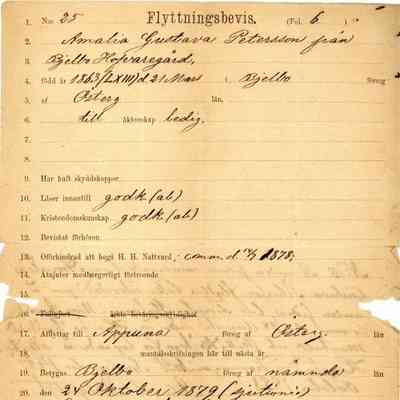 1. No: 25 Flyttningsbevis. (Fol. 6
2. Amalia Gustava Petersson från
3. Bjelbo
4. född år 1863 (LXIII) d 21 Mars i Bjelbo församl
5. af Österg län.
6. till äktenskap ledig.
7.
8.
9. Har haft skyddskoppor.
10. Läser innantill godk (ab)
11. Kristendomskunskap godk (ab)
12. Bevistat förhören.
13. Oförhindrad att begå H. H. Nattvard, comm. d. 1878;
14. Åtnjuter medborgerligt förtroende
15.
16.
17. Afflyttar till Appuna förs:g af Österg. län
18. mantalsskrifningen här till nästa år.
19. Betygas Bjelbo förs:g af nämnda län
20. den 24 Oktober 1879